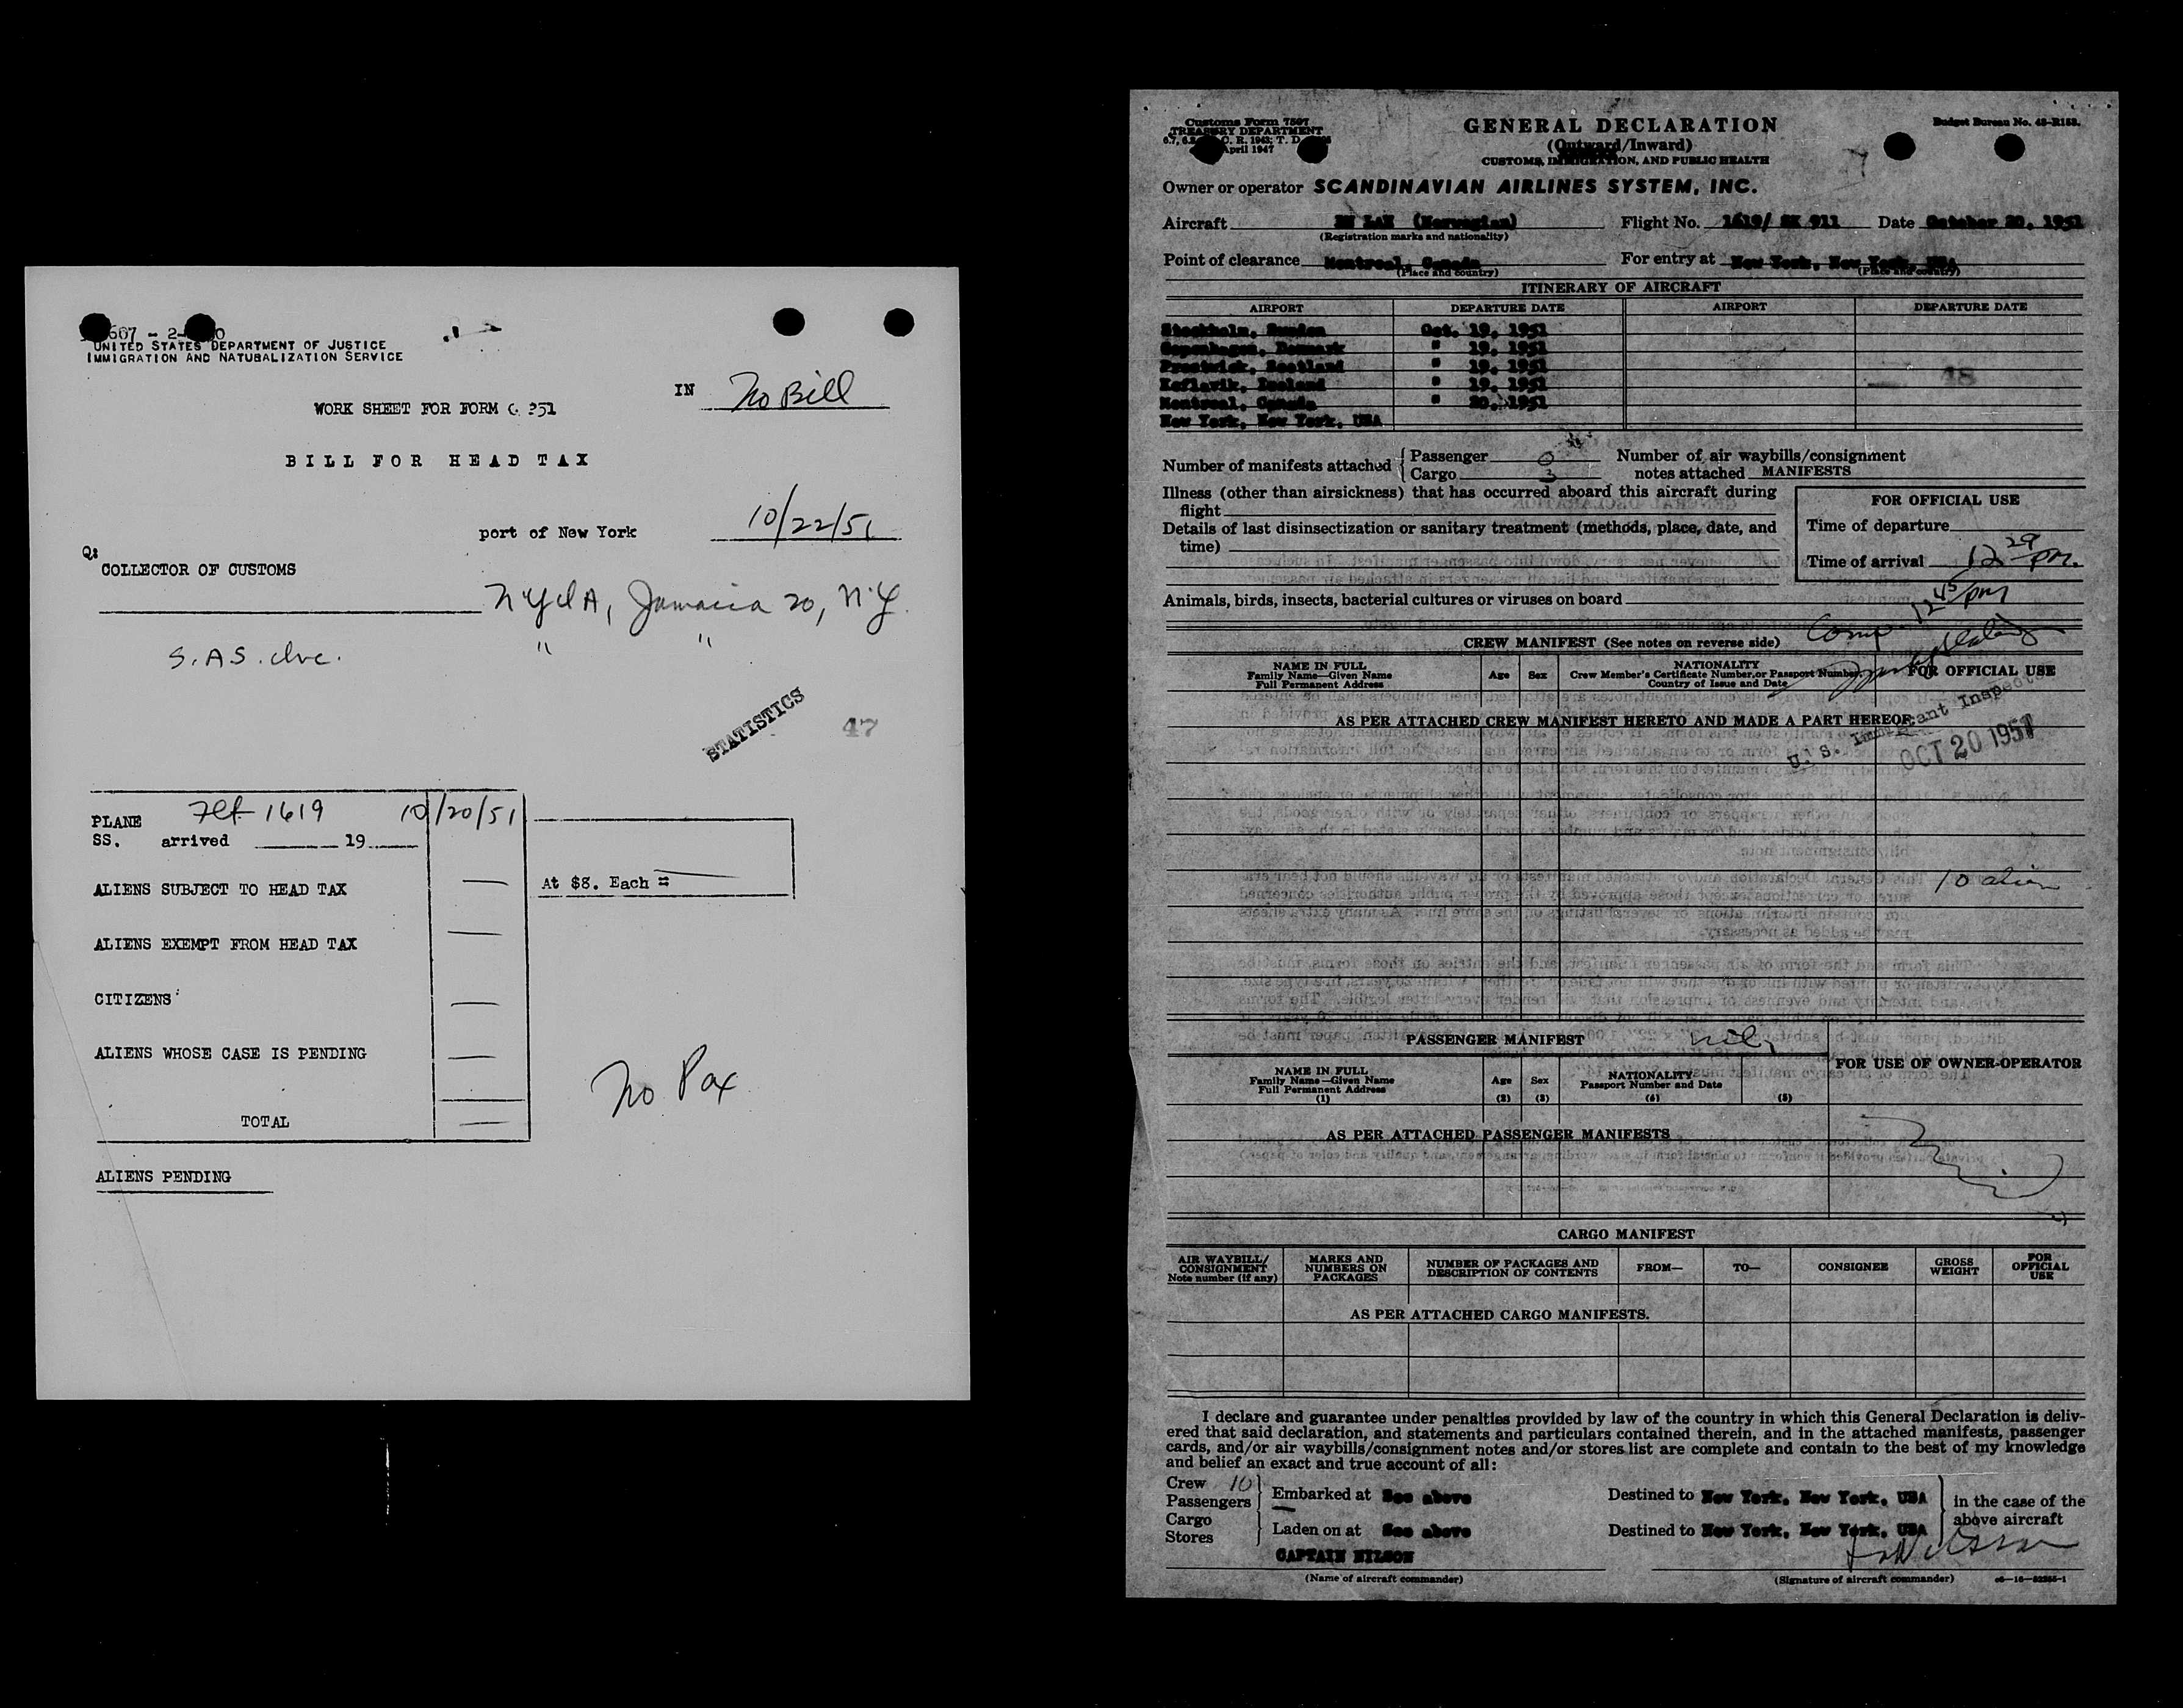 607 - 2- 0
UNITED STATES DEPARTMENT OF JUSTICE
IMMIGRATION AND NATURALIZATION SERVICE
IN No Bill
WORK SHEET FOR FORM G 351
BILL FOR HEAD TAX
port of New York 10/22/51
COLLECTOR OF CUSTOMS
NYIA, Jamaica 20, N.Y.
S.A.S. Inc. " "
STATISTICS 47
PLANE Flt 1619 10/20/51
SS. arrived 19
ALIENS SUBJECT TO HEAD TAX — At $8. Each = —
ALIENS EXEMPT FROM HEAD TAX —
CITIZENS —
ALIENS WHOSE CASE IS PENDING —
No Pax
TOTAL —
ALIENS PENDING
Customs Form 7507
TREASURY DEPARTMENT
April 1947
GENERAL DECLARATION
(Outward/Inward)
CUSTOMS, IMMIGRATION, AND PUBLIC HEALTH
Budget Bureau No. 48-R153.
Owner or operator SCANDINAVIAN AIRLINES SYSTEM, INC.
Aircraft (Norwegian) Flight No. 1619/ SK 911 Date October 20, 1951
(Registration marks and nationality)
Point of clearance Montreal, Canada For entry at New York, New York, USA
(Place and country) (Place and country)
ITINERARY OF AIRCRAFT
AIRPORT DEPARTURE DATE AIRPORT DEPARTURE DATE
Stockholm, Sweden Oct. 19, 1951
Copenhagen, Denmark " 19, 1951
Prestwick, Scotland " 19, 1951
Keflavik, Iceland " 19, 1951 48
Montreal, Canada " 20, 1951
New York, New York, USA
Number of manifests attached { Passenger 0
Cargo 3
Number of air waybills/consignment
notes attached MANIFESTS
Illness (other than airsickness) that has occurred aboard this aircraft during
flight
Details of last disinsectization or sanitary treatment (methods, place, date, and
time)
FOR OFFICIAL USE
Time of departure
Time of arrival 12 29 pm.
Animals, birds, insects, bacterial cultures or viruses on board
Comp. 12 45 pm
CREW MANIFEST (See notes on reverse side)
NAME IN FULL
Family Name—Given Name
Full Permanent Address
Age Sex
NATIONALITY
Crew Member's Certificate Number, or Passport Number,
Country of Issue and Date
FOR OFFICIAL USE
AS PER ATTACHED CREW MANIFEST HERETO AND MADE A PART HEREOF.
U. S. Immigrant Inspector
OCT 20 1951
10 alien
PASSENGER MANIFEST nil
NAME IN FULL
Family Name—Given Name
Full Permanent Address
(1)
Age
(2)
Sex
(3)
NATIONALITY
Passport Number and Date
(4) (5)
FOR USE OF OWNER-OPERATOR
AS PER ATTACHED PASSENGER MANIFESTS
CARGO MANIFEST
AIR WAYBILL/
CONSIGNMENT
Note number (if any)
MARKS AND
NUMBERS ON
PACKAGES
NUMBER OF PACKAGES AND
DESCRIPTION OF CONTENTS
FROM— TO— CONSIGNEE
GROSS
WEIGHT
FOR
OFFICIAL
USE
AS PER ATTACHED CARGO MANIFESTS.
I declare and guarantee under penalties provided by law of the country in which this General Declaration is deliv-
ered that said declaration, and statements and particulars contained therein, and in the attached manifests, passenger
cards, and/or air waybills/consignment notes and/or stores list are complete and contain to the best of my knowledge
and belief an exact and true account of all:
Crew 10
Passengers —
Cargo
Stores
Embarked at See above Destined to New York, New York, USA
Laden on at See above Destined to New York, New York, USA
in the case of the
above aircraft
CAPTAIN NILSON
(Name of aircraft commander) (Signature of aircraft commander)